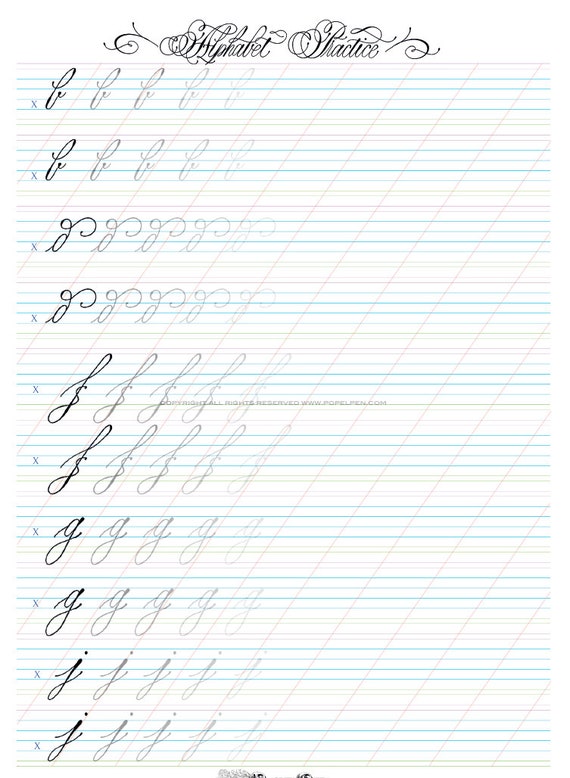 Alphabet Practice
X b b b b b
X b b b b b
X
X
X f f f f f
COPYRIGHT ALL RIGHTS RESERVED WWW.POPELPEN.COM
X f f f f f
X g g g g g
X g g g g g
X j j j j j
X j j j j j